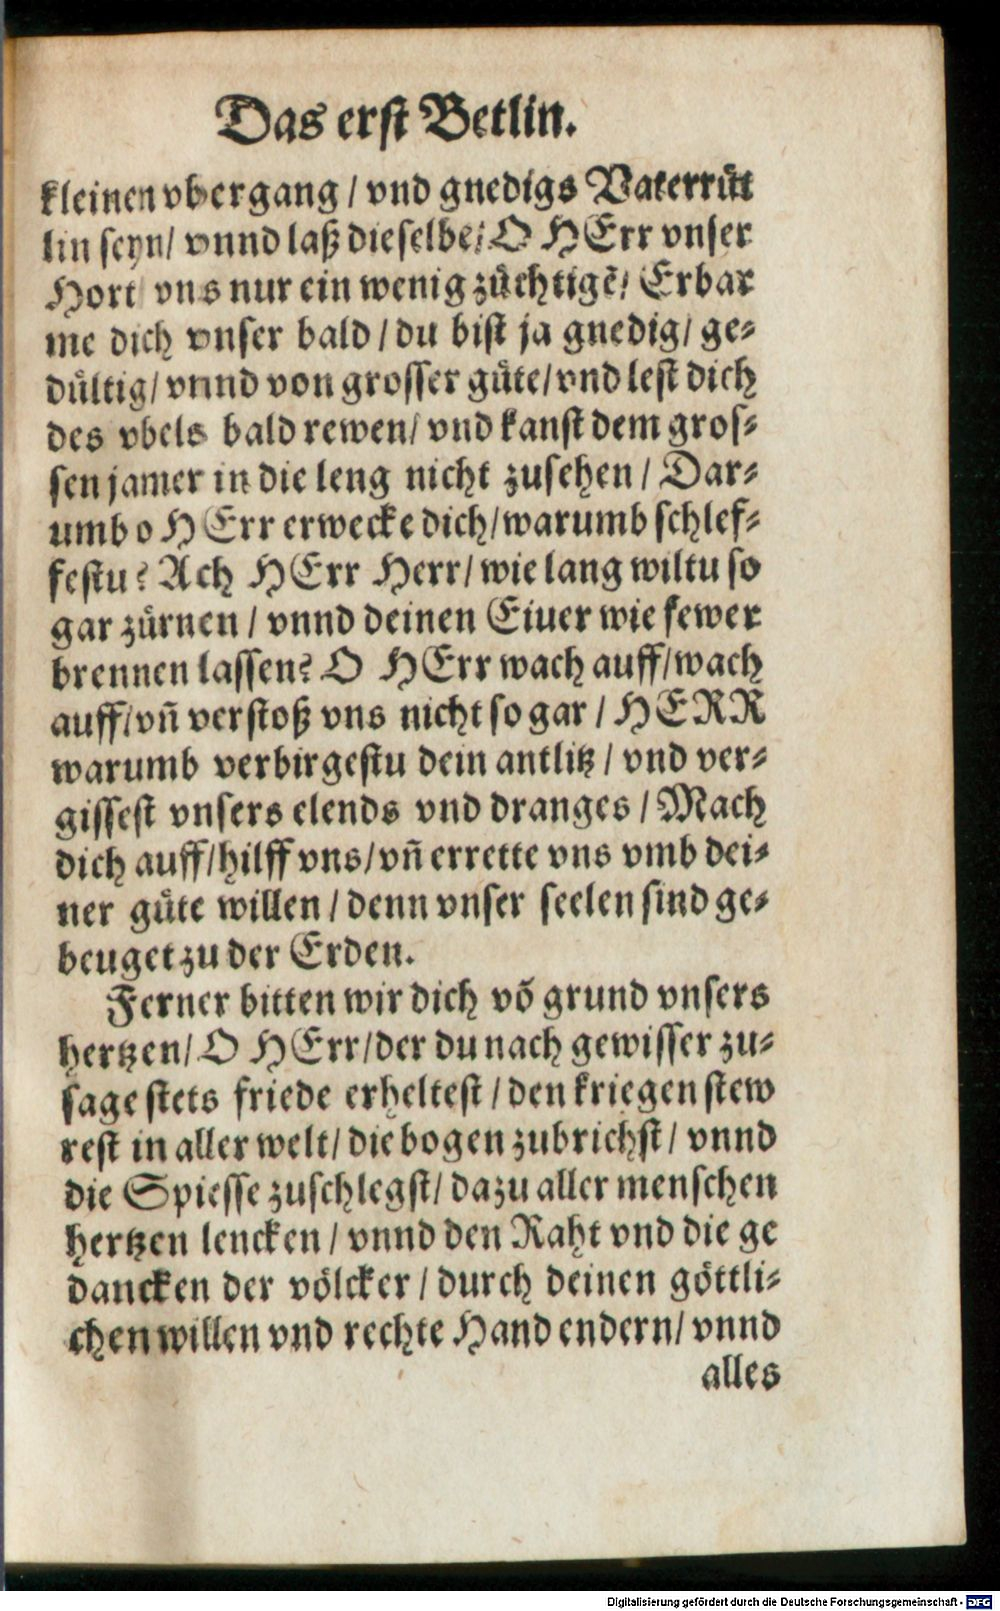 Das erst Betlin.
kleinen vbergang / vnd gnedigs Vaterruͤt
lin seyn/ vnnd laß dieselbe/ O HErr vnser
Hort/ vns nur ein wenig zuͤchtigẽ/ Erbar
me dich vnser bald / du bist ja gnedig/ ge⸗
duͤltig/ vnnd von grosser guͤte/ vnd lest dich
des vbels bald rewen/ vnd kanst dem gros⸗
sen jamer in die leng nicht zusehen / Dar⸗
umb o HErr erwecke dich/ warumb schlef⸗
festu? Ach HErr Herr/ wie lang wiltu so
gar zuͤrnen / vnnd deinen Eiuer wie fewer
brennen lassen? O HErr wach auff/ wach
auff/ vñ verstoß vns nicht so gar / HERR
warumb verbirgestu dein antlitz / vnd ver⸗
gissest vnsers elends vnd dranges / Mach
dich auff/ hilff vns/ vñ errette vns vmb dei⸗
ner guͤte willen / denn vnser seelen sind ge⸗
beuget zu der Erden.
Ferner bitten wir dich võ grund vnsers
hertzen/ O HErr/ der du nach gewisser zu⸗
sage stets friede erheltest / den kriegen stew
rest in aller welt/ die bogen zubrichst/ vnnd
die Spiesse zuschlegst/ dazu aller menschen
hertzen lencken / vnnd den Raht vnd die ge
dancken der voͤlcker / durch deinen goͤttli⸗
chen willen vnd rechte Hand endern/ vnnd
alles
Digitalisierung gefördert durch die Deutsche Forschungsgemeinschaft - DFG